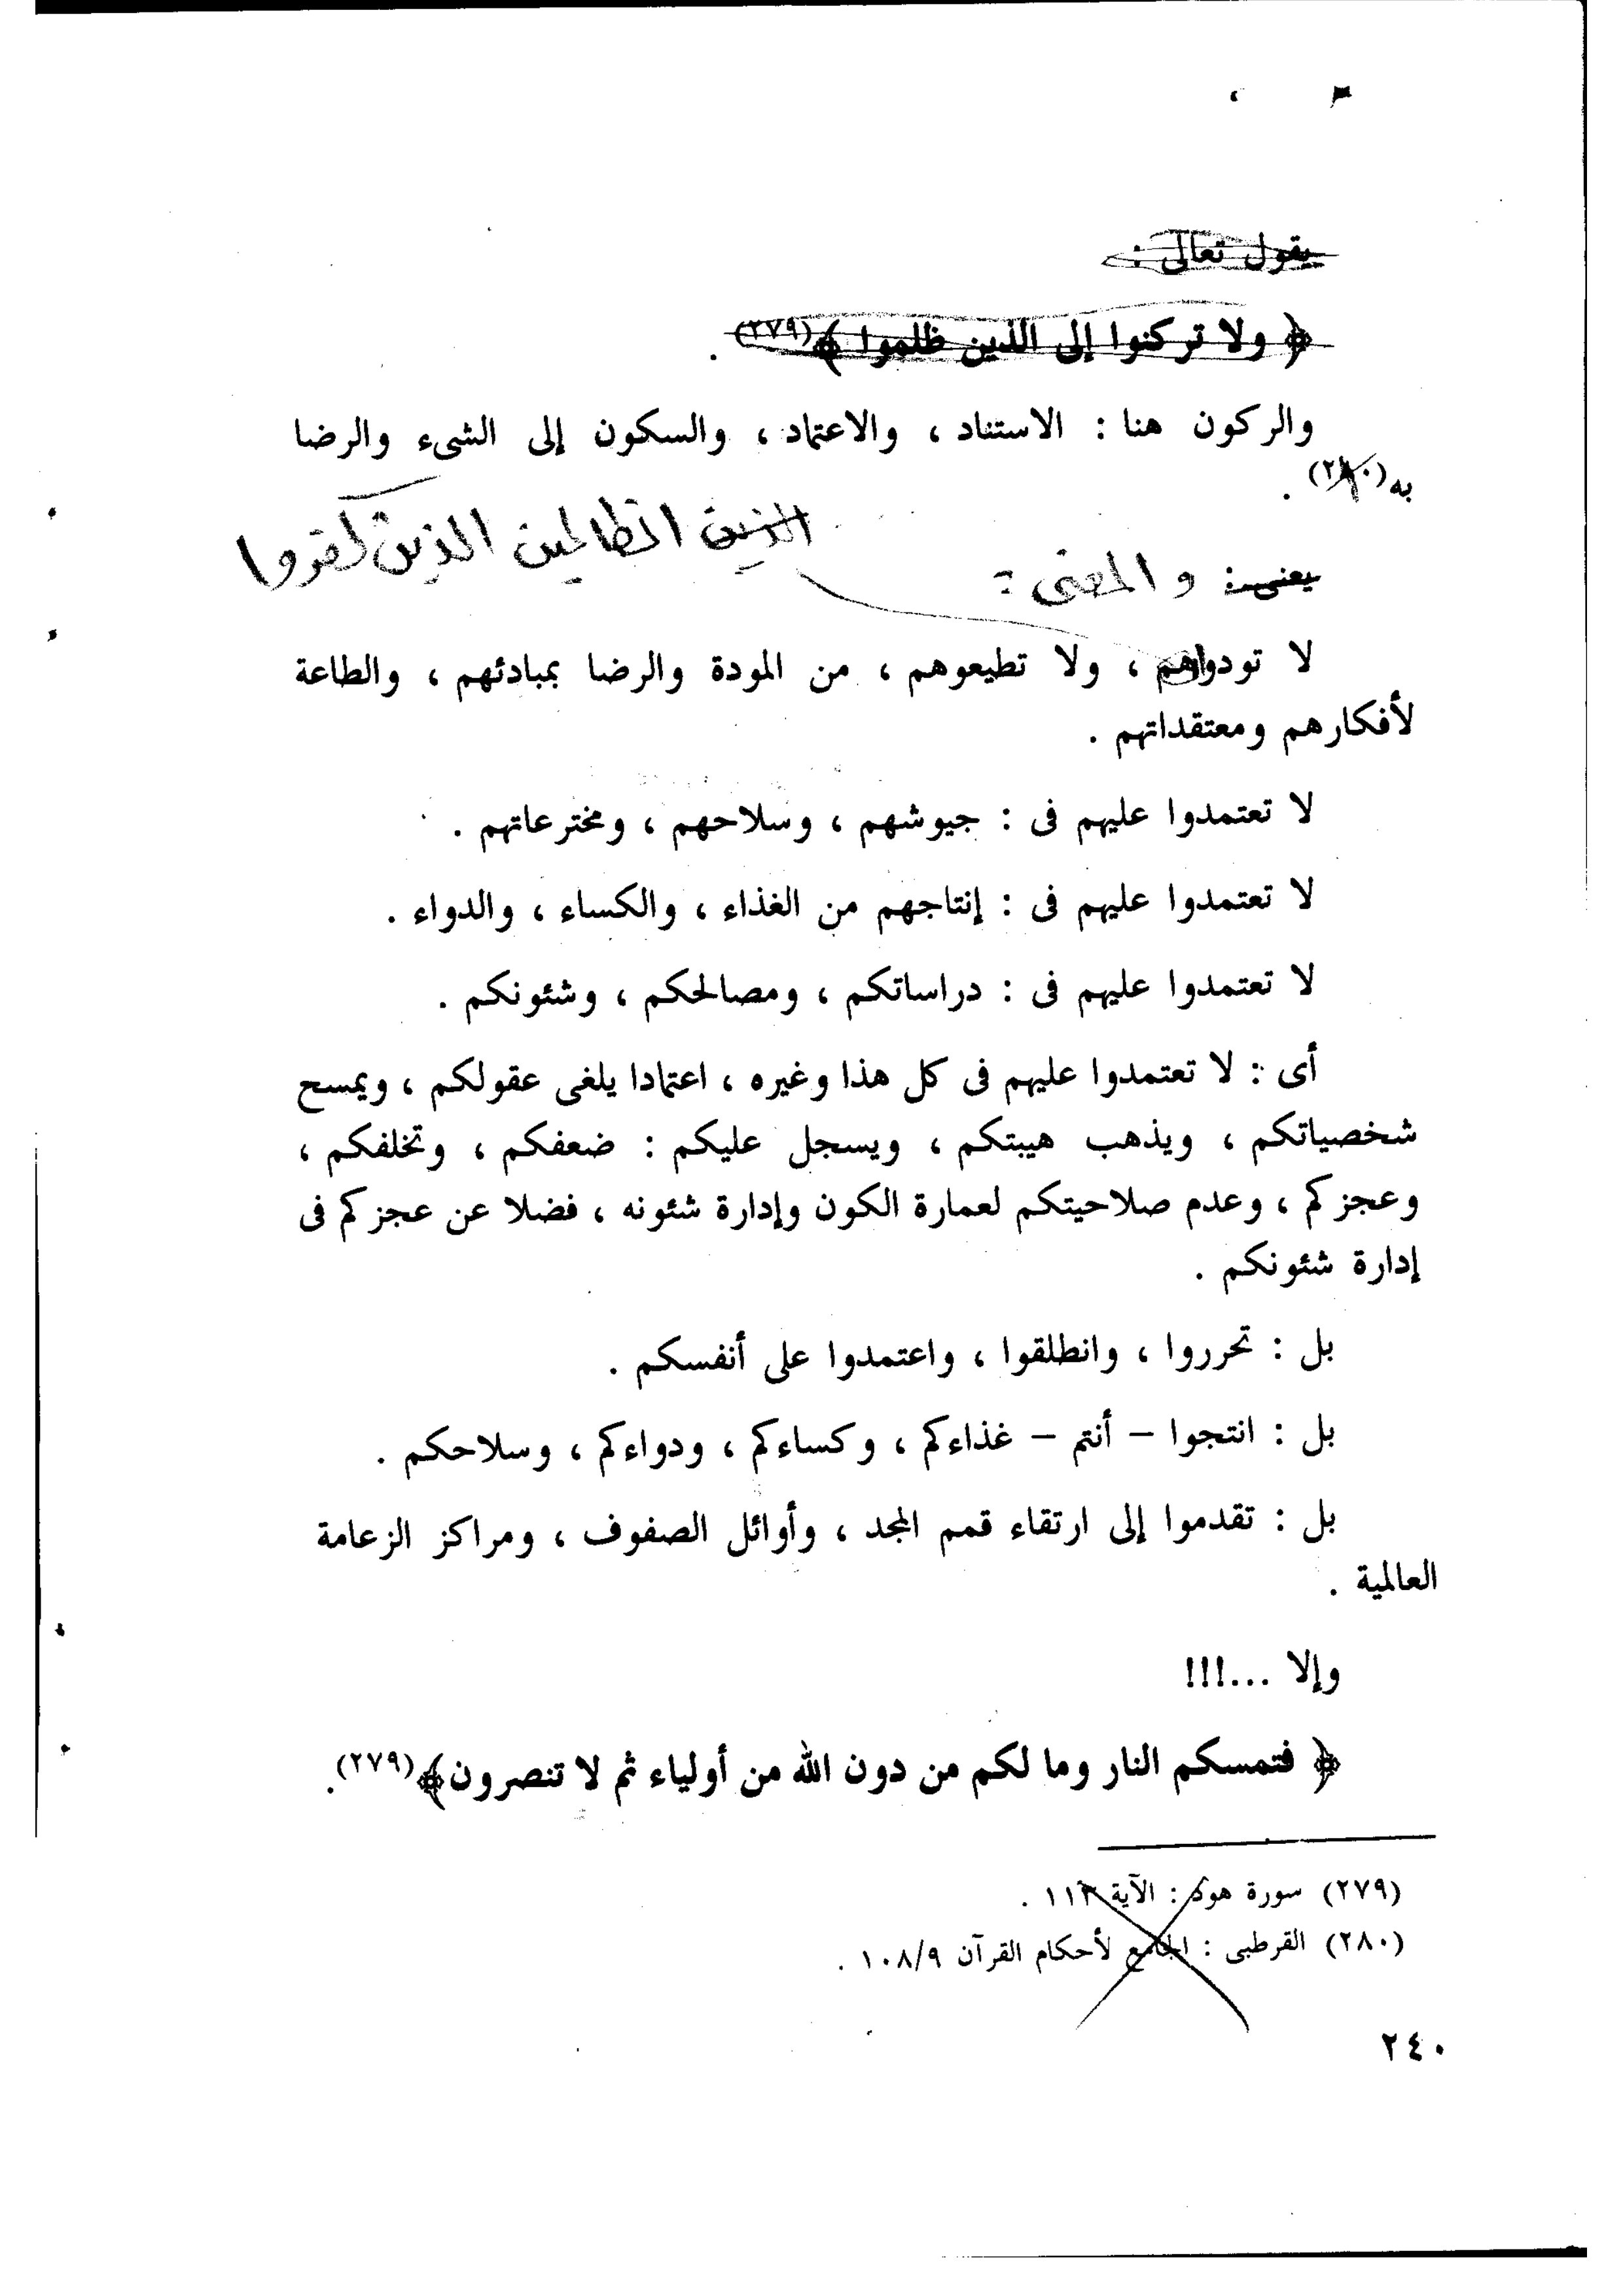 يقول تعالى :
﴿ ولا تركنوا إلى الذين ظلموا ﴾(٢٧٩) .
والركون هنا : الاستناد ، والاعتماد ، والسكون إلى الشىء والرضا
به(٢٨٠) .
الذين الظالمين الذين كفروا
يعنى : والمعنى :
لا تودوهم ، ولا تطيعوهم ، من المودة والرضا بمبادئهم ، والطاعة
لأفكارهم ومعتقداتهم .
لا تعتمدوا عليهم فى : جيوشهم ، وسلاحهم ، ومخترعاتهم .
لا تعتمدوا عليهم فى : إنتاجهم من الغذاء ، والكساء ، والدواء .
لا تعتمدوا عليهم فى : دراساتكم ، ومصالحكم ، وشئونكم .
أى : لا تعتمدوا عليهم فى كل هذا وغيره ، اعتمادا يلغى عقولكم ، ويمسح
شخصياتكم ، ويذهب هيبتكم ، ويسجل عليكم : ضعفكم ، وتخلفكم ،
وعجزكم ، وعدم صلاحيتكم لعمارة الكون وإدارة شئونه ، فضلا عن عجزكم فى
إدارة شئونكم .
بل : تحرروا ، وانطلقوا ، واعتمدوا على أنفسكم .
بل : انتجوا – أنتم – غذاءكم ، وكساءكم ، ودواءكم ، وسلاحكم .
بل : تقدموا إلى ارتقاء قمم المجد ، وأوائل الصفوف ، ومراكز الزعامة
العالمية .
وإلا ...!!!
﴿ فتمسكم النار وما لكم من دون الله من أولياء ثم لا تنصرون﴾(٢٧٩).
(٢٧٩) سورة هود : الآية ١١٣ .
(٢٨٠) القرطبى : الجامع لأحكام القرآن ١٠٨/٩ .
٢٤٠